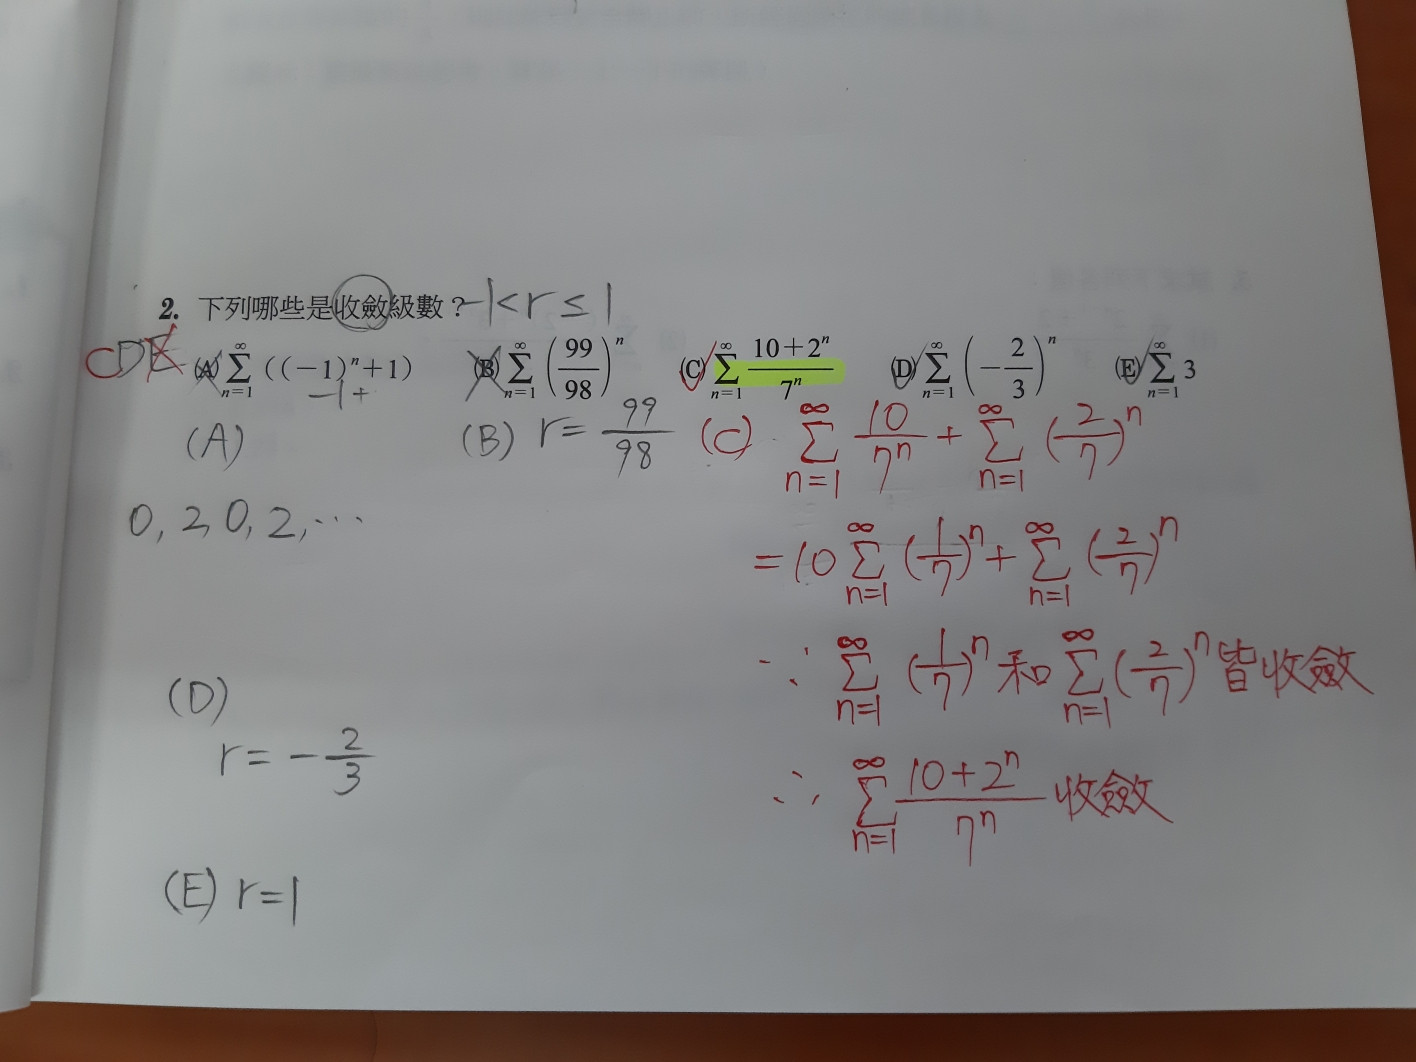 2. 下列哪些是收斂級數？ -1<r≤1
CDE (A) ∑_{n=1}^{∞} ((-1)^n+1) (B) ∑_{n=1}^{∞} (99/98)^n (C) ∑_{n=1}^{∞} (10+2^n)/7^n (D) ∑_{n=1}^{∞} (-2/3)^n (E) ∑_{n=1}^{∞} 3
-1+
(A) (B) r=99/98 (C) ∑_{n=1}^{∞} 10/7^n + ∑_{n=1}^{∞} (2/7)^n
0, 2, 0, 2, ⋯
=10 ∑_{n=1}^{∞} (1/7)^n + ∑_{n=1}^{∞} (2/7)^n
∵ ∑_{n=1}^{∞} (1/7)^n 和 ∑_{n=1}^{∞} (2/7)^n 皆收斂
∴ ∑_{n=1}^{∞} (10+2^n)/7^n 收斂
(D)
r=-2/3
(E) r=1